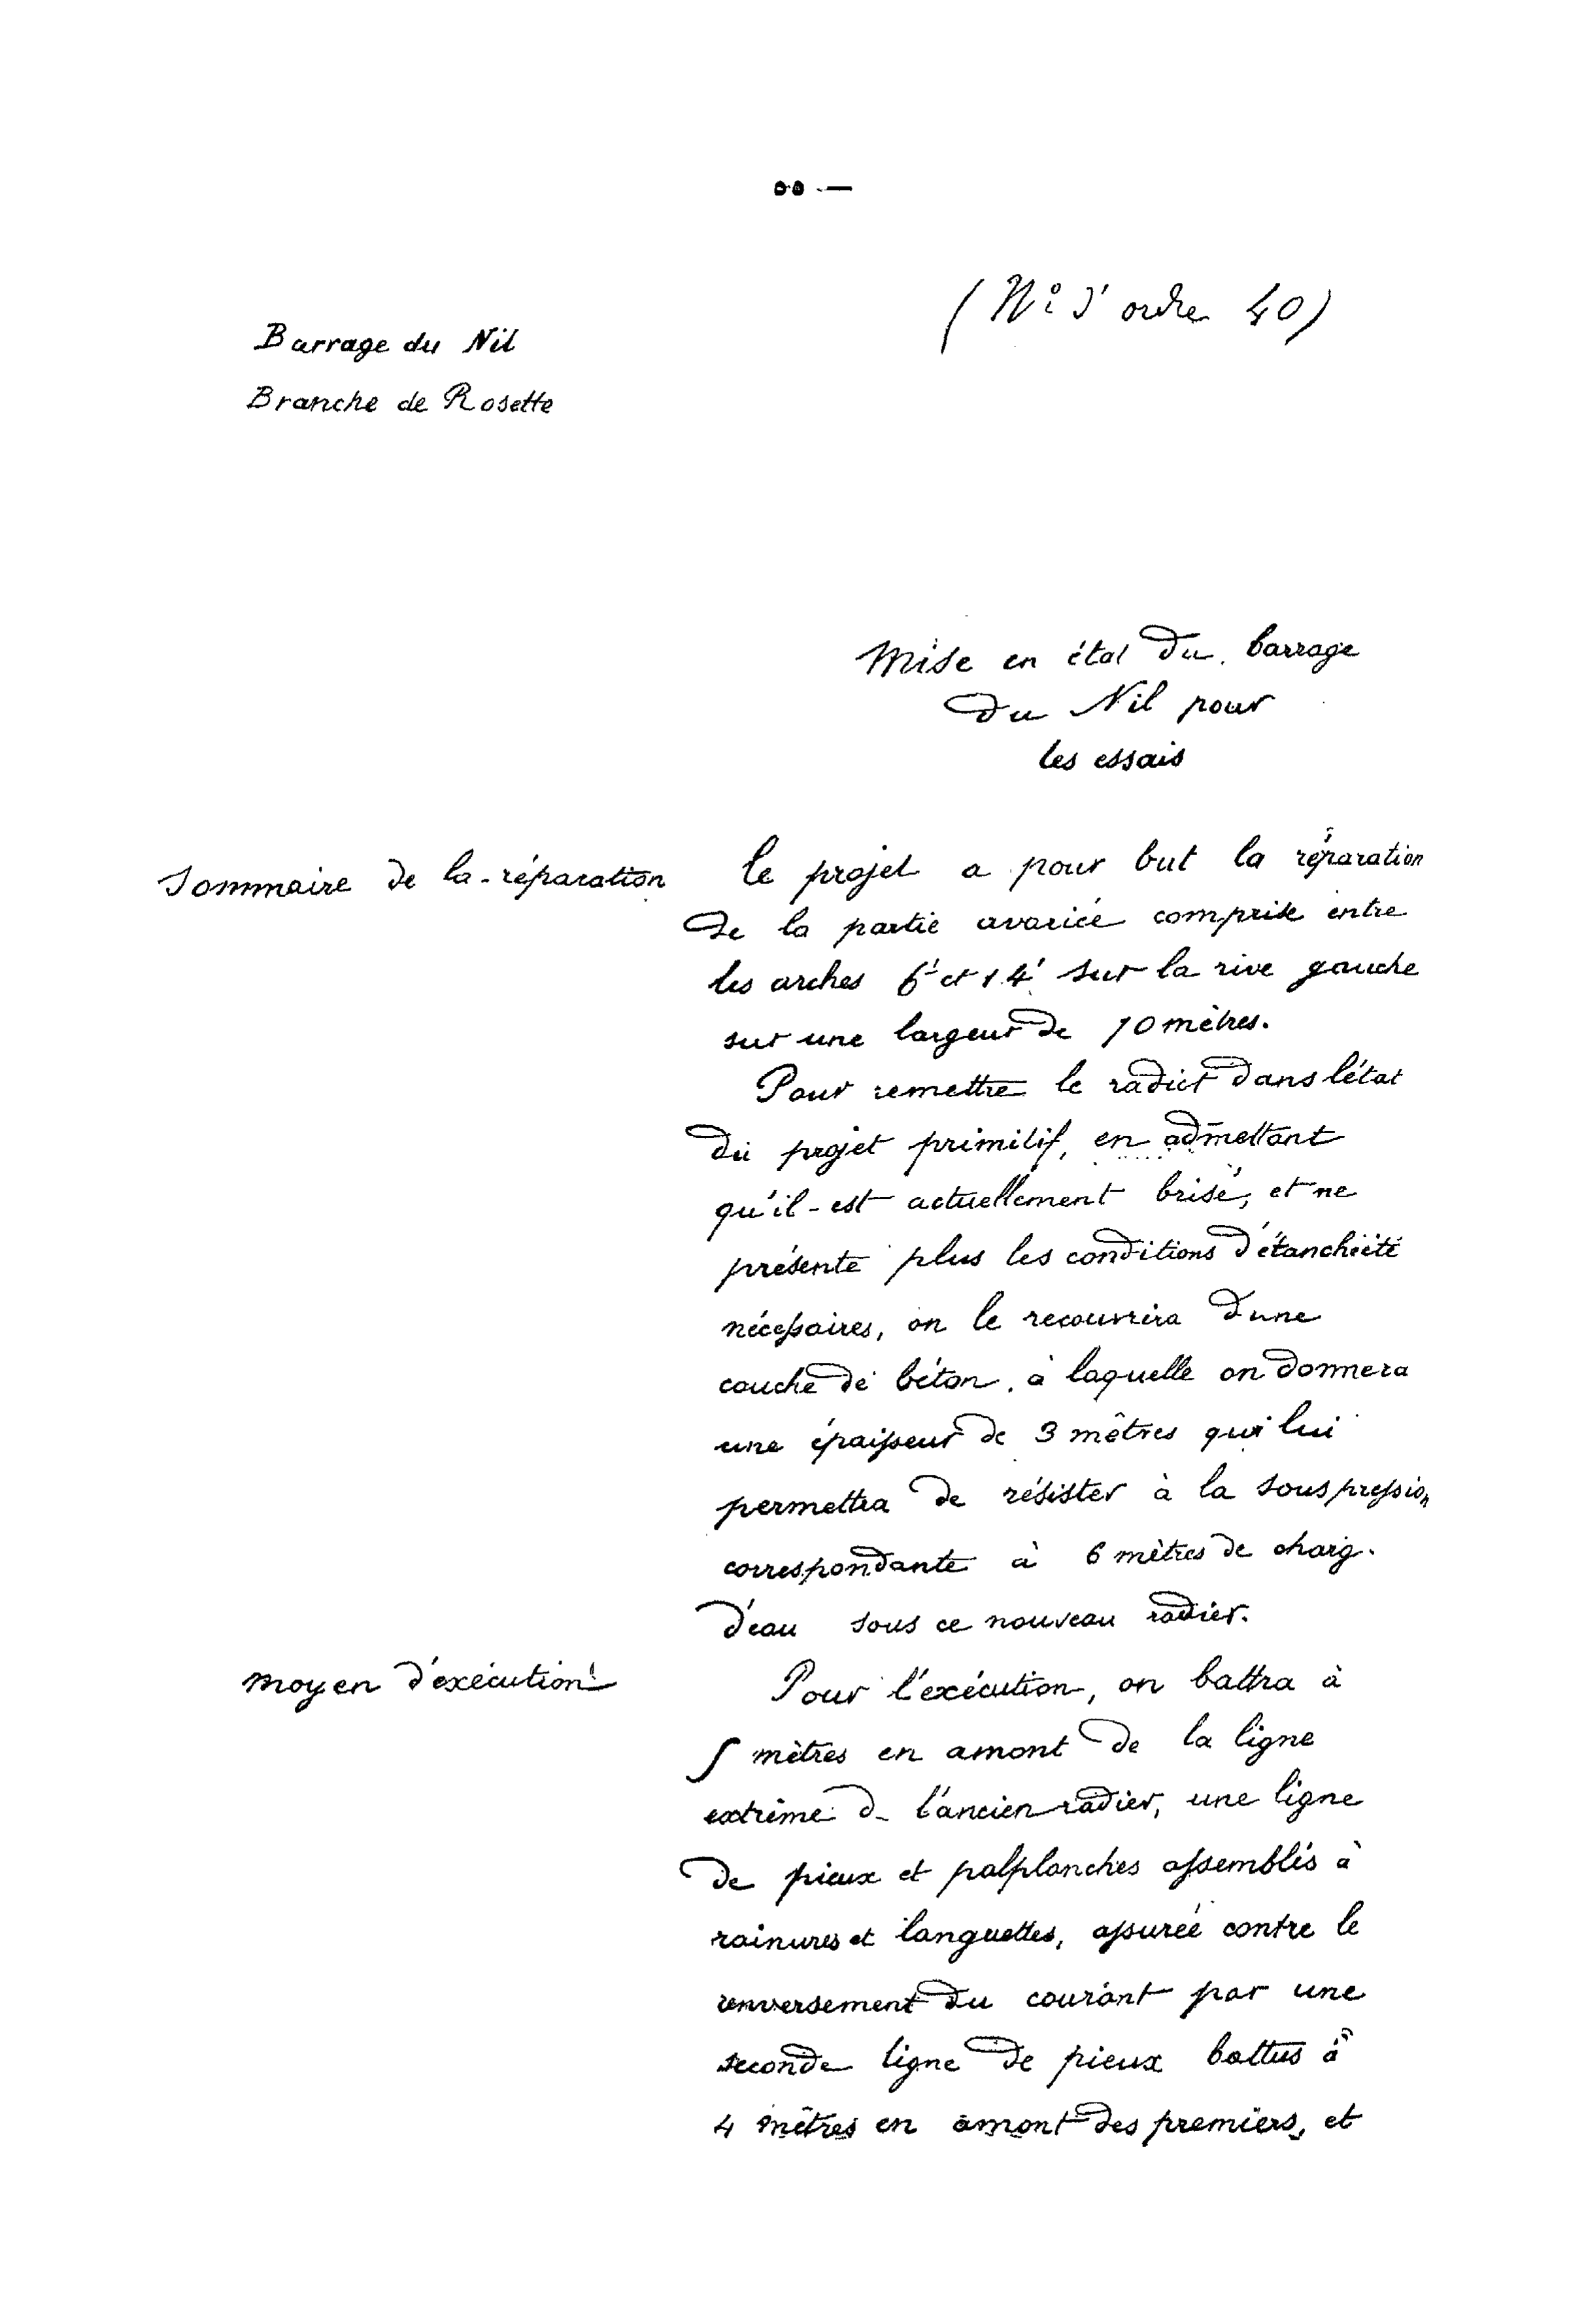 ٥٥ —
(N° d'ordre 40)
Barrage du Nil
Branche de Rosette
Mise en état du barrage
du Nil pour
les essais
Sommaire de la réparation
le projet a pour but la réparation
de la partie avariée comprise entre
les arches 6 et 14 sur la rive gauche
sur une largeur de 10 mètres.
Pour remettre le radier dans l'état
du projet primitif, en admettant
qu'il est actuellement brisé, et ne
présente plus les conditions d'étanchéité
nécessaires, on le recouvrira d'une
couche de béton, à laquelle on donnera
une épaisseur de 3 mètres qui lui
permettra de résister à la souspression
correspondante à 6 mètres de charg.
d'eau sous ce nouveau radier.
moyen d'exécution
Pour l'exécution, on battra à
5 mètres en amont de la ligne
extrême d_ l'ancien radier, une ligne
de pieux et palplanches assemblés à
rainures et languettes, assurée contre le
renversement du courant par une
seconde ligne de pieux battus à
4 mètres en amont des premiers, et